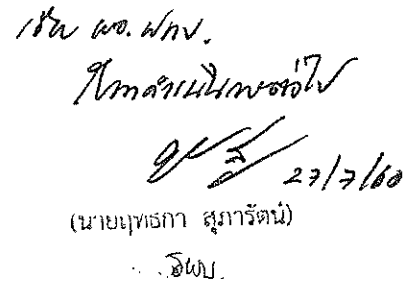 เรียน ผอ. ฝทบ.
โปรดดำเนินการต่อไป
27/7/60
(นายฤทธกา สุภารัตน์)
รผบ.